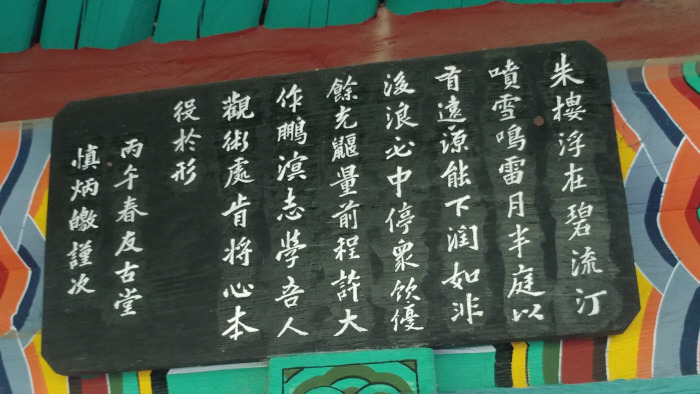 朱樓浮在碧流汀
噴雪鳴雷月半庭以
有遠源能下潤如非
後浪必中停衆飲優
餘充鼴量前程許大
作鵬溟志學吾人
觀術處肯將心本
役於形
丙午春友古堂
愼炳皦謹次